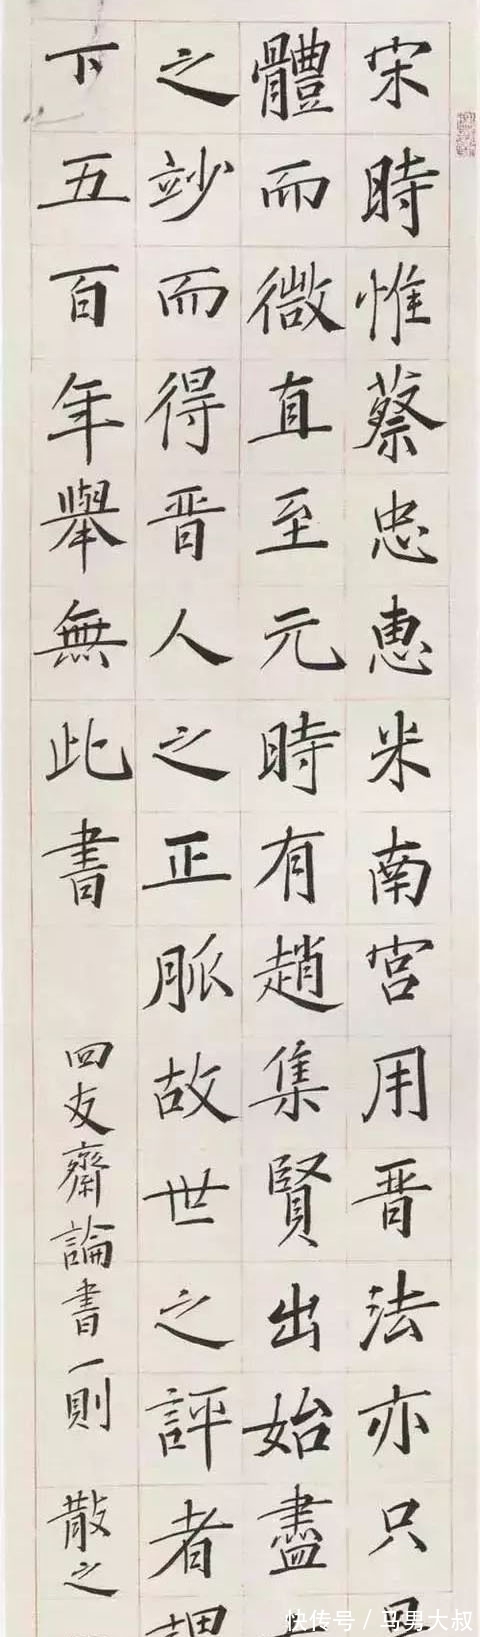 宋時惟蔡忠惠米南宮用晋法亦只
體而微直至元時有趙集賢出始盡
之竗而得晋人之正脈故世之評者謂
下五百年舉無此書
四友齋論書一則 散之
快传号/马男大叔